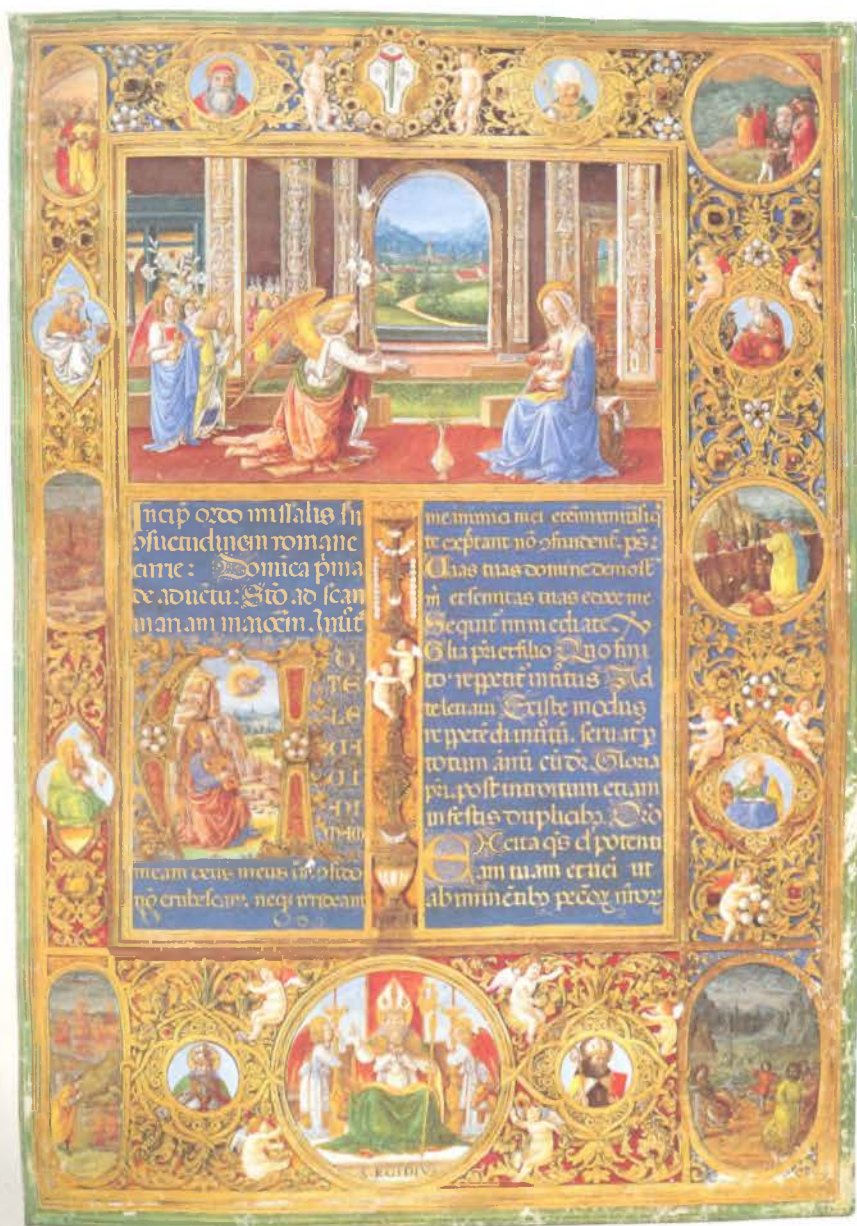 Incip ordo missalis sm
ↄsuetudinem romane
curie: Domica p̄ma
de aduētu: Stō ad scan
mariam maiorem. Introit
D
TE
LE
UA
UI
ANI
MAM
meam deus meus in te ↄfido
nō erubescam. neqȝ irrideant
me inimici mei etenim uniūsi q
te exp̄tant nō ↄfundent̄. ps:
Uias tuas domine demost̄
m̄ et semitas tuas edoce me
Sequit̄ immediate.
Glia pr̄i et filio Quo fini
to repetit̄ introitus Ad
te leuaui Et iste modus
repetēdi introitū. seruat̄ p
totum annū cū dr̄. Gloria
pr̄i. post introitum etiam
in festis duplicibȝ. Oro
EXcita qs dn̄ potenti
am tuam et uei ut
ab iminētibȝ peccoȝ nr̄oȝ
S. EGIDIVS